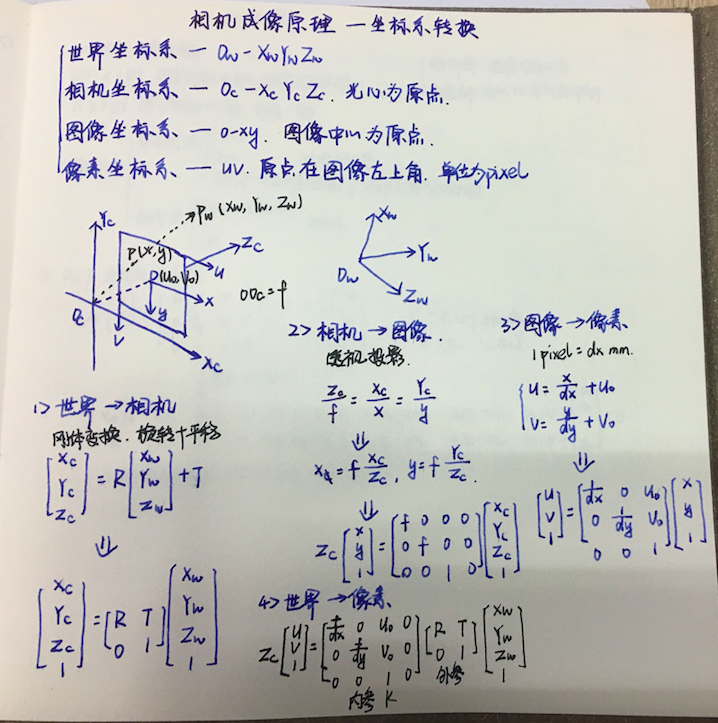 相机成像原理 — 坐标系转换
世界坐标系 — Ow - XwYwZw
相机坐标系 — Oc - XcYcZc. 光心为原点.
图像坐标系 — o-xy. 图像中心为原点.
像素坐标系 — uv. 原点在图像左上角. 单位为pixel
Yc
Pw (Xw, Yw, Zw)
P(x,y)
Zc
u
(u0, v0)
x
y
Oc
v
Xc
OOc = f
Xw
Yw
Ow
Zw
1> 世界 → 相机
刚体变换. 旋转+平移
[Xc Yc Zc] = R [Xw Yw Zw] + T
⇓
[Xc Yc Zc 1] = [R T; 0 1] [Xw Yw Zw 1]
2> 相机 → 图像.
投影.
Zc/f = Xc/x = Yc/y
⇓
x = f Xc/Zc, y = f Yc/Zc.
⇓
Zc [x y 1] = [f 0 0 0; 0 f 0 0; 0 0 1 0] [Xc Yc Zc 1]
3> 图像 → 像素.
1 pixel = dx mm.
u = x/dx + u0
v = y/dy + v0
⇓
[u v 1] = [1/dx 0 u0; 0 1/dy v0; 0 0 1] [x y 1]
4> 世界 → 像素.
Zc [u v 1] = [f/dx 0 u0 0; 0 f/dy v0 0; 0 0 1 0] [R T; 0 1] [Xw Yw Zw 1]
内参 K
外参